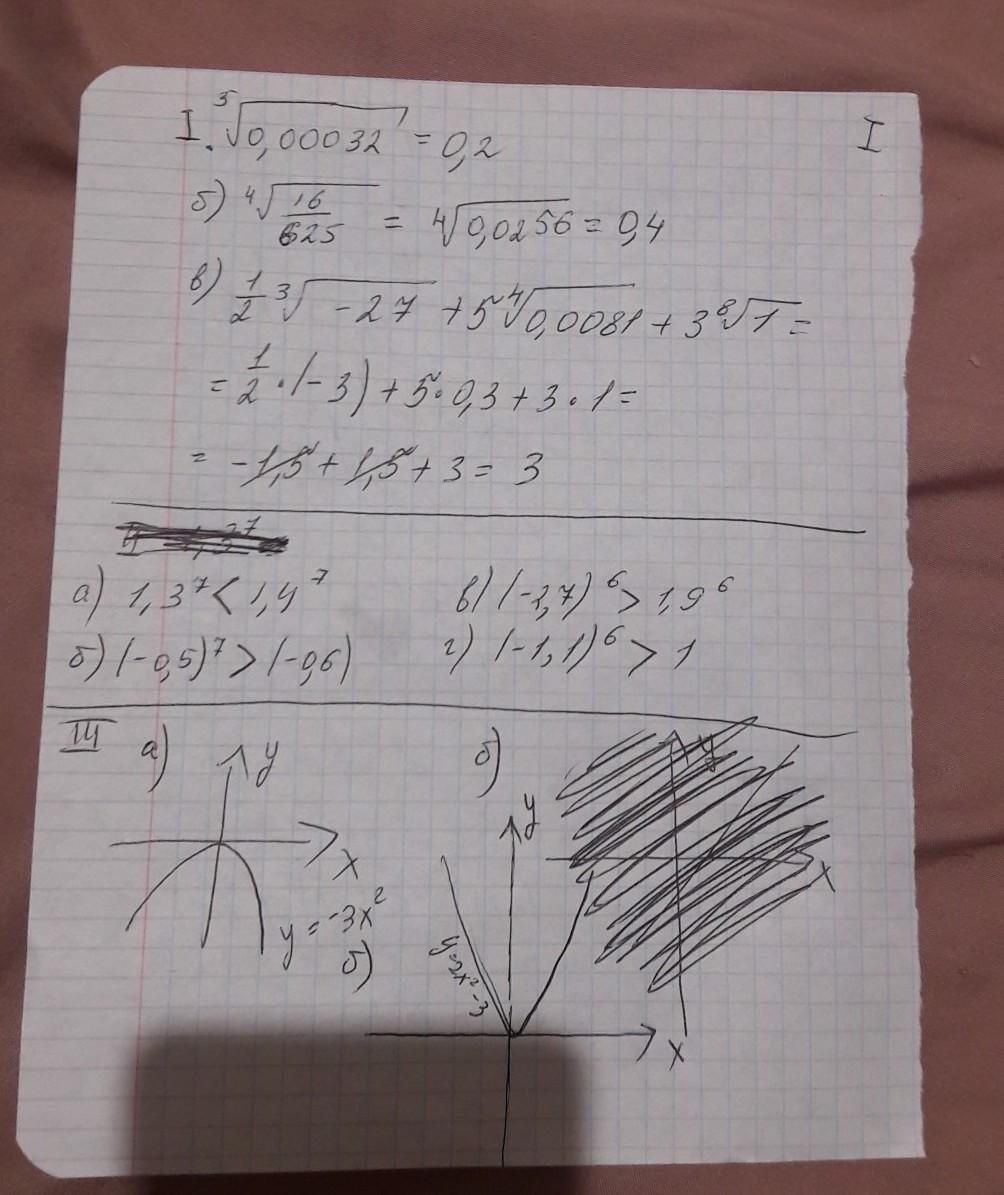 I. ⁵√0,00032 = 0,2
I
б) ⁴√16/625 = ⁴√0,0256 = 0,4
в) 1/2 ³√-27 + 5 ⁴√0,0081 + 3 ⁸√1 =
= 1/2 · (-3) + 5 · 0,3 + 3 · 1 =
= -1,5 + 1,5 + 3 = 3
а) 1,3⁷ < 1,4⁷
в) (-2,7)⁶ > 1,9⁶
б) (-0,5)⁷ > (-0,6)
г) (-1,1)⁶ > 1
III
а)
y
x
y = -3x²
б)
б)
y
y=2x²-3
x
y
x